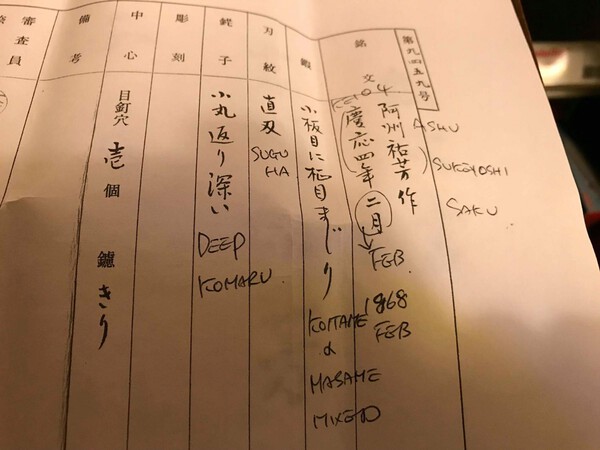 第九四五九号
ASHU
SUKEYOSHI
SAKU
銘文
阿州祐芳作
KEIO 4
(慶応四年二月)
FEB.
1868
FEB
鍛
小板目に柾目まじり
KOITAME
&
MASAME
MIXED
刃紋
直刃
SUGU
HA
鋩子
小丸返り深い
DEEP
KOMARU
彫刻
中心
目釘穴 壱個 鑢 きり
備考
審査員